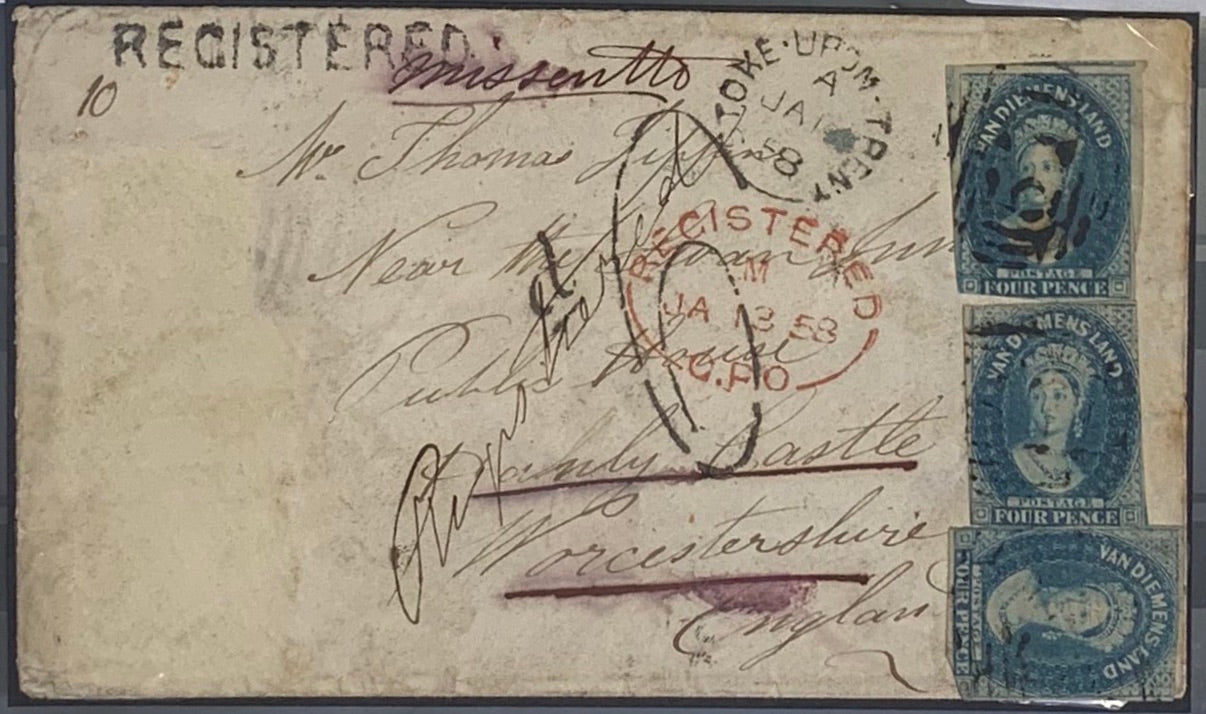 REGISTERED
missent to
10
STOKE·UPON·TRENT
A
JA
58
Mr. Thomas
Near the Swan Inn
Public House
Castle
Worcestershire
England
REGISTERED
M
JA 13 58
G.P.O
VAN DIEMENS LAND
POSTAGE
FOUR PENCE
VAN DIEMENS LAND
POSTAGE
FOUR PENCE
VAN DIEMENS LAND
POSTAGE
FOUR PENCE